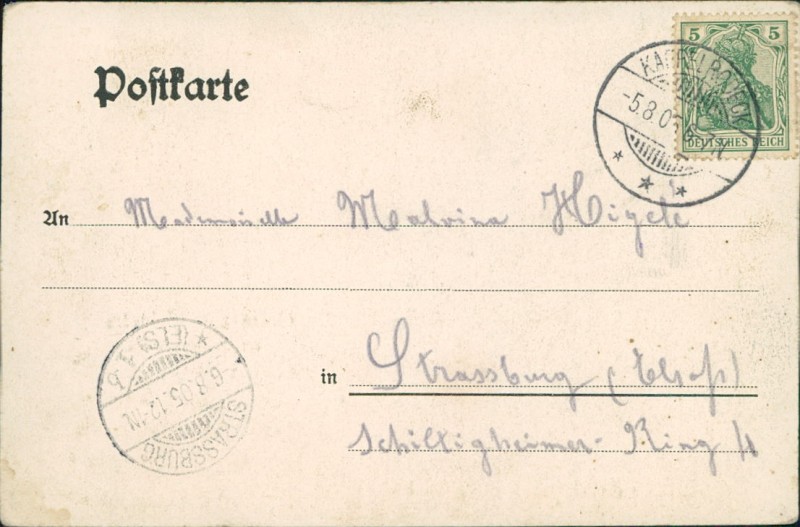 Postkarte
5 5
DEUTSCHES REICH
-5.8.05
An Mademoiselle Malvina Higelé
in Strassburg (Elsaß)
Schiltigheimer-Ring
STRASSBURG (ELS)
6.8.05.12-1N.